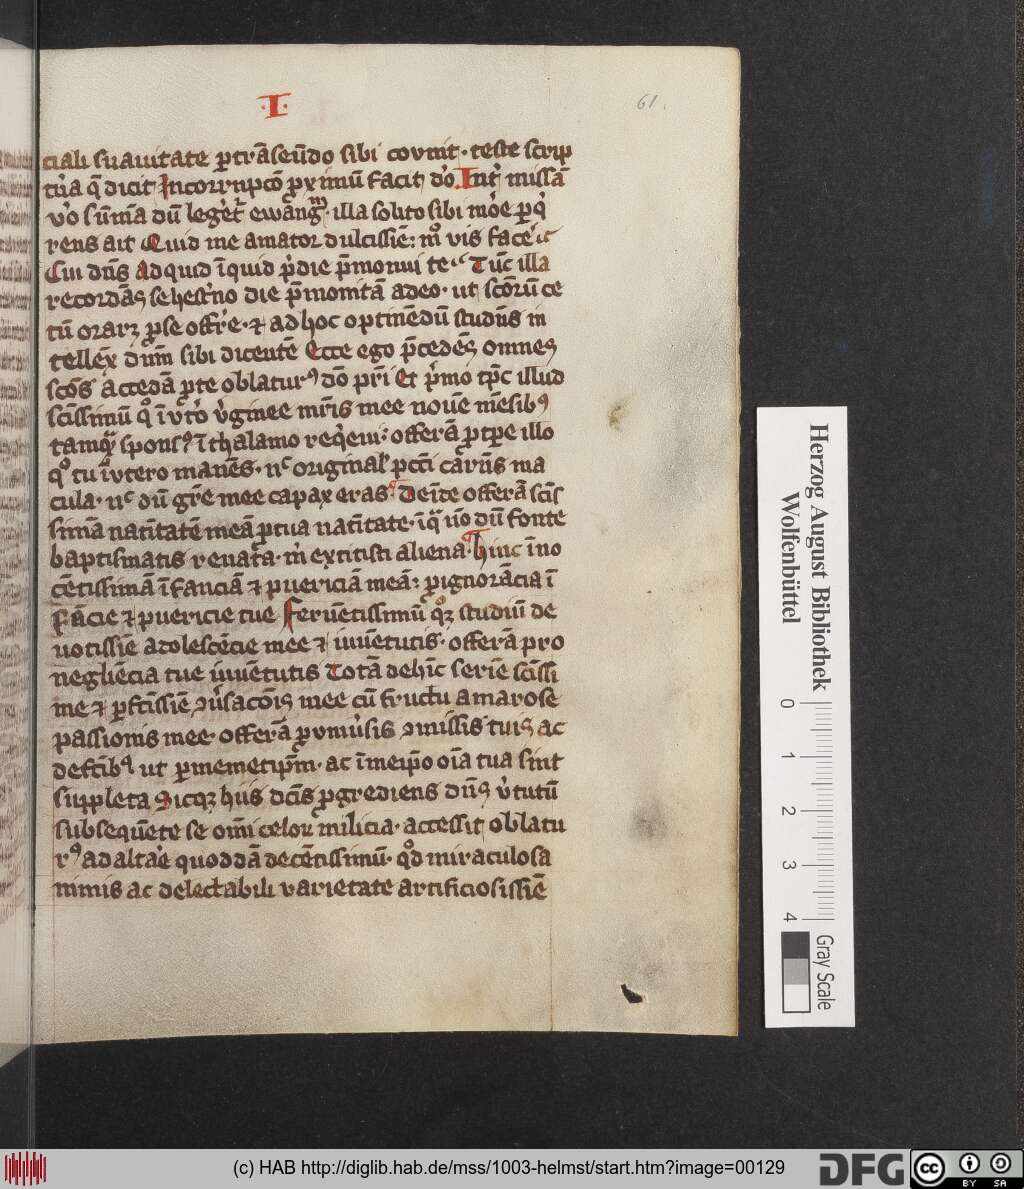 ·I·
61.
ciali suauitate ꝑtrāseūdo sibi cōvnit· teste scrip
tͥa q̄ dicit Incorrupcō ꝓximū facit dō. Int̾ missā
vͦo sūmā dū leget̾ ewāngm̄· illa solito sibi moͤe ꝑq̾
rens ait Quid me amator dulcissīe: m̊ vis face̾
Cui dn̄s Ad quid īquid p̾die p̄monui te Tūc illa
recordās se hest̾no die p̄monitā adeo· ut scōrū ce
tū oraꝝ ꝓ se offr̾e· ⁊ ad hoc optinēdū studn̄s in
tellex̄ dn̄m sibi dicentē Ecce ego p̄cedēs omnes
scōs accedā ꝓ te oblaturꝰ dō pr̄i Et pͥmo tp̄c illud
scīssimū qͦ ī vt̾o v̾ginee mr̄is mee nouē mēsibꝰ
tamqᷓ sponsꝰ ī thalamo req̾eui: offerā ꝓ tp̄e illo
qͦ tu ī vtero manēs· nͨ original̾ pcc̄i car̄ns ma
cula· nͨ dū gr̄e mee capax eras Deīde offerā scīs
simā natītatē meā ꝓ tua natītate· ī q̄ nͦo dū fonte
baptismatis renata· m̄ extitisti aliena· Hinc īno
cētissimā īfanciā ⁊ puericiā meā: ꝓ ignorācia ī
fācie ⁊ puericie tue Feruētissimū qͦꝫ studiū de
uotissīe adolescēcie mee ⁊ iuuētutis· offerā pro
negliēcia tue iuuētutis Totā dehīc seriē scīssi
me ⁊ ꝑfc̄issīe ꝯu̾sacōis mee cū fructu amarose
passionis mee· offerā ꝓ vniu̾sis ꝯmissis tuis ac
defc̄ibꝰ ut ꝑ memetip̄m· ac ī meip̄o oīa tua sint
suppleta Sicqꝫ hiis dc̄is ꝓgrediens dn̄s v̾tutū
subsequēte se om̄i celoꝝ milicia· accessit oblatu
rꝰ ad altar̾e quoddā decētissimū· qͦd miraculosa
nimis ac delectabili varietate artificiosissīe
Herzog August Bibliothek
Wolfenbüttel
0 1 2 3 4
Gray Scale
(c) HAB http://diglib.hab.de/mss/1003-helmst/start.htm?image=00129
DFG
cc BY SA